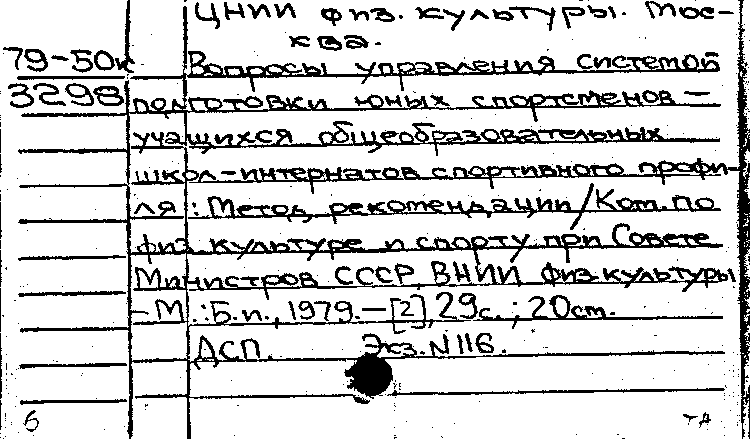 ЦНИИ физ. культуры. Мос-
ква.
79-50к Вопросы управления системой
3298 подготовки юных спортсменов —
учащихся общеобразовательных
школ-интернатов спортивного профи-
ля : Метод. рекомендации / Ком. по
физ. культуре и спорту при Совете
Министров СССР, ВНИИ физ. культуры
– М. : Б.и., 1979. — [2], 29с. ; 20см.
ДСП. Экз. N 116.
б